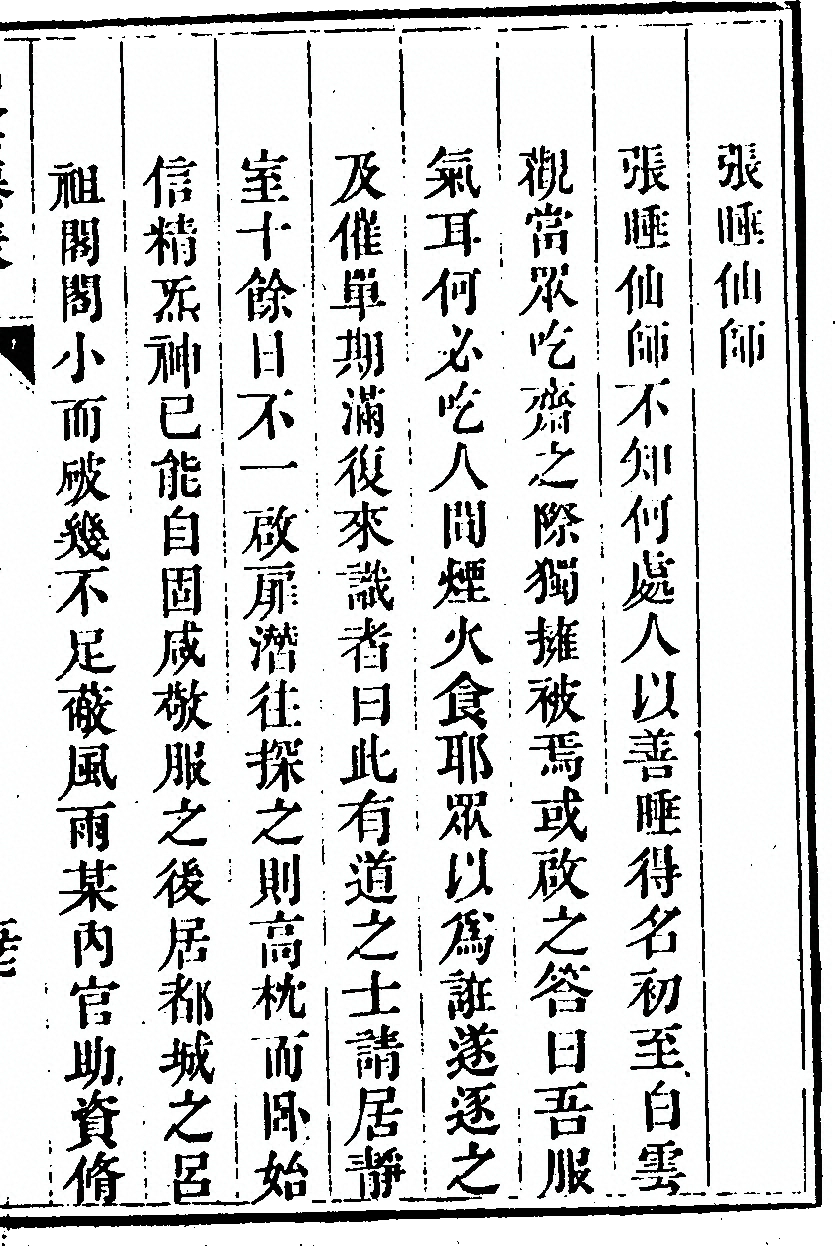 張睡仙師
張睡仙師不知何處人以善睡得名初至白雲
觀當眾吃齋之際獨擁被焉或啟之答曰吾服
氣耳何必吃人間煙火食耶眾以爲誑遂逐之
及催單期滿復來識者曰此有道之士請居靜
室十餘日不一啟扉潛往探之則高枕而臥始
信精炁神已能自固咸敬服之後居都城之呂
祖閣閣小而破幾不足蔽風雨某內官助資脩